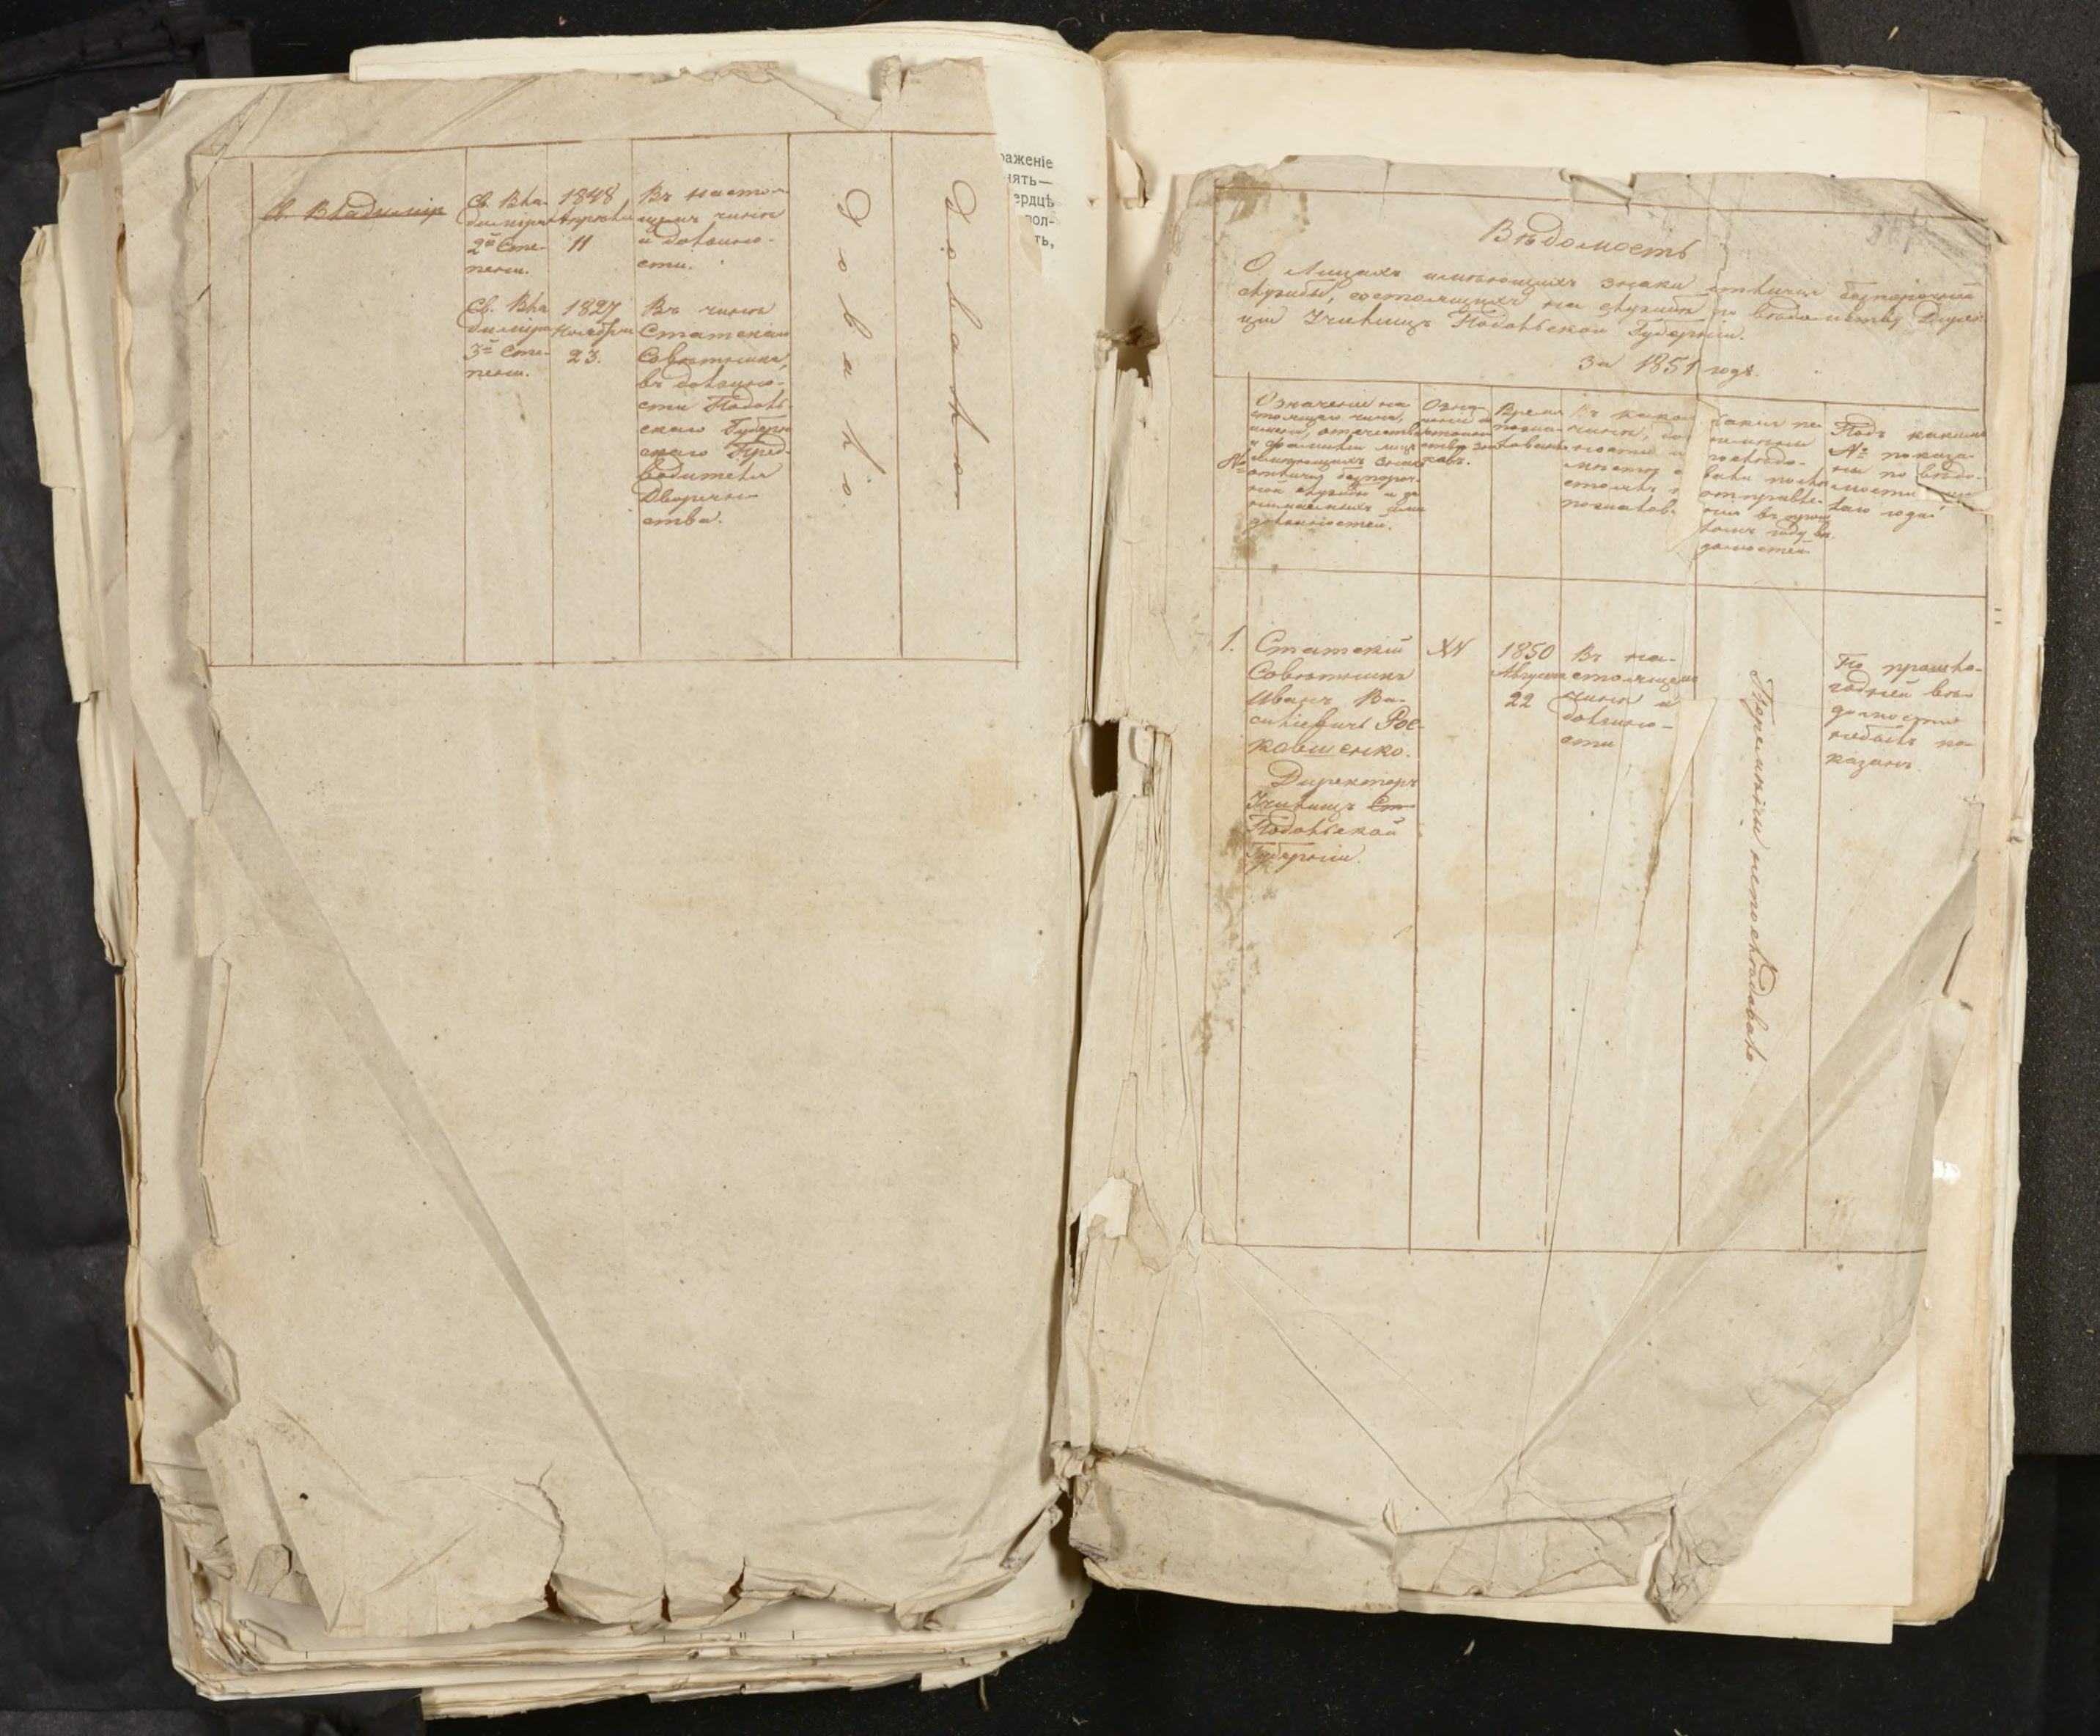 Св. Владимір
Св. Вла-
диміра
2й Сте-
пени.
1848
Апрѣля
11
Въ настоя-
щемъ чинѣ
и должно-
сти.
Св. Вла
диміра
3й Сте-
пени.
1827
Ноября
23.
Въ чинѣ
Статскаго
Совѣтника,
въ должно-
сти Подоль-
скаго Губерн
скаго Пред-
водителя
Дворян-
ства.
раженіе
нять—
ердцѣ
пол-
ть,
Вѣдомость
О Лицахъ имѣющихъ знаки отличія безпорочной
службы, состоящихъ на службѣ по вѣдомству Дирек
ціи Училищъ Подольской Губерніи.
за 1851 годъ.
№
Означеніе на
стоящаго чина,
имени, отчества
и фамиліи лицъ
имѣющихъ знаки
отличія безпороч-
ной службы и за
нимаемыхъ ими
должностей.
Время
Въ како
чинѣ, до
Какія пе
ремѣны
послѣдо-
вали послѣ
отправле-
нія въ прош
ломъ году вѣ
домостей.
Подъ какимъ
№ показа
ны по вѣдо-
мости
лаго года
1.
Статскій
Совѣтникъ
Иванъ Ва-
сильевичъ Рос-
ковшенко.
Директоръ
Училищъ Ст
Подольской
Губерніи.
XV
1850
Августа
22
Въ на-
стоящемъ
чинѣ и
должно-
сти
Перемѣны непослѣдовало.
По прошло-
годней вѣ-
домости
небылъ по-
казанъ.